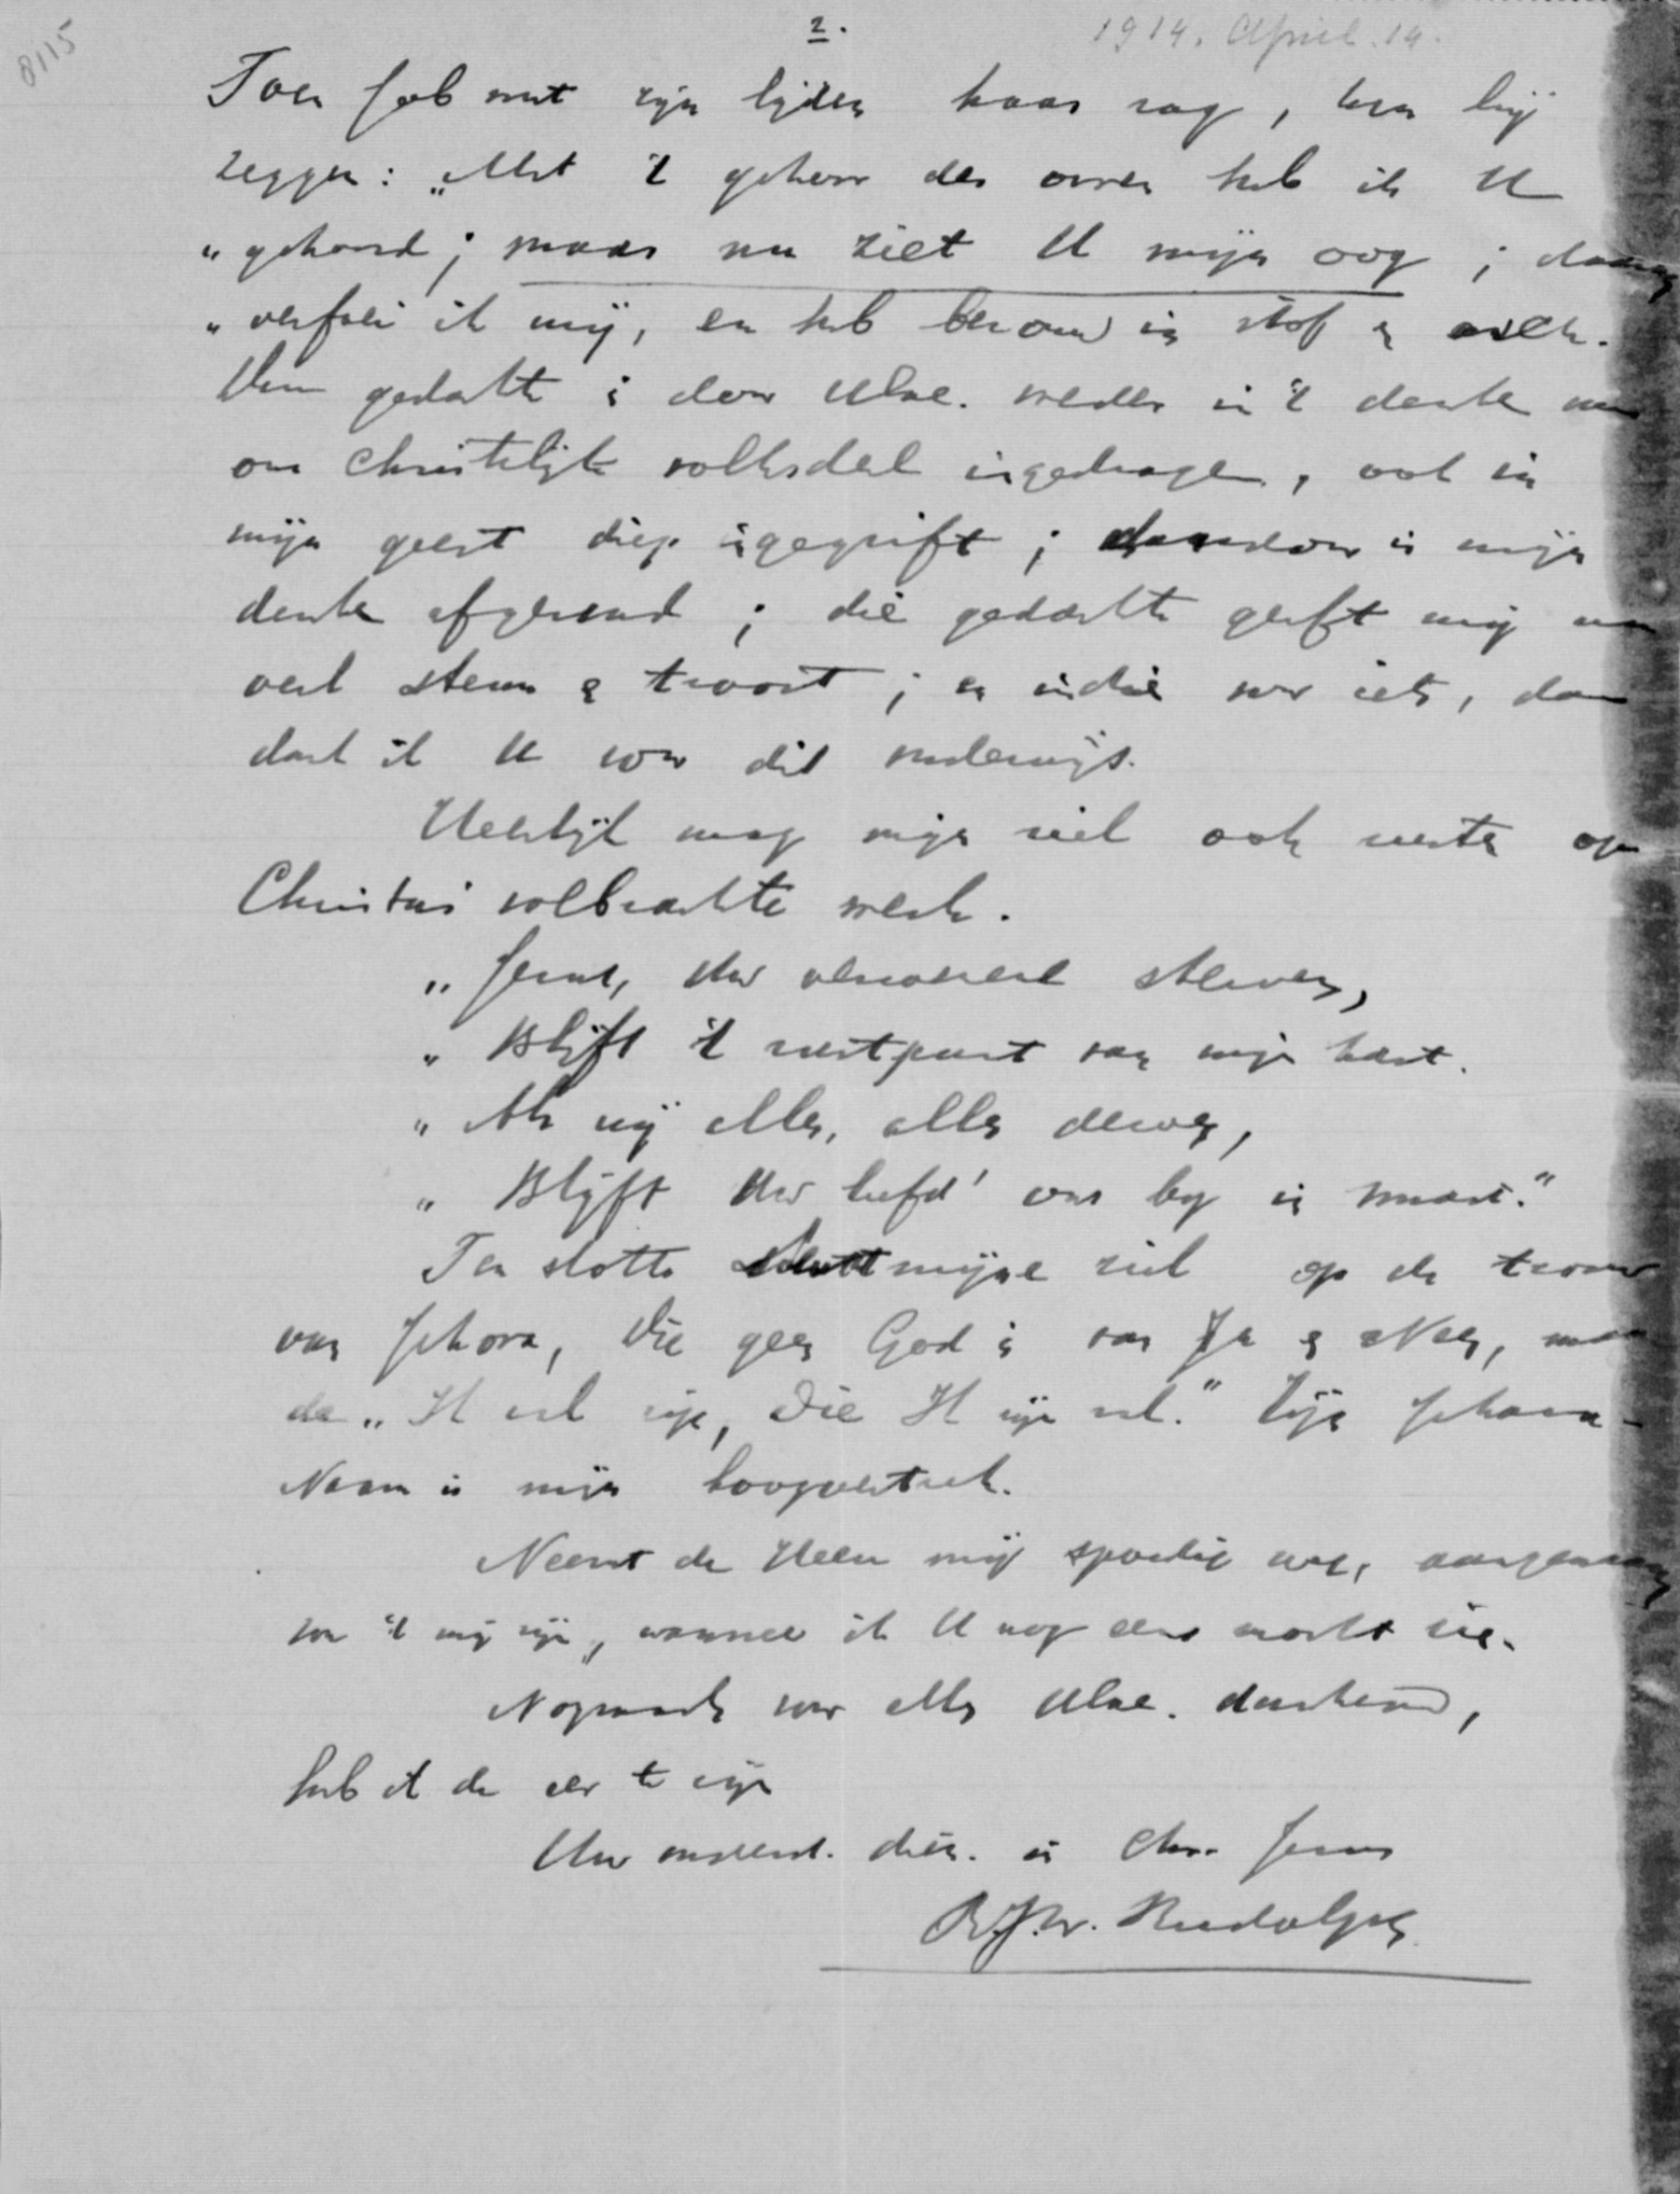 8115
2.
1914. April. 14.
Toen Job met zijn lijden klaar zag, kon hij
zeggen: „Met 't gehoor der ooren heb ik U
„gehoord; maar nu ziet U mijn oog;
„verfoei ik mij, en heb berouw in stof en asch.
gedachte is door UEde. weder in 't denken
ons Christelijk volksdeel ingedragen, ook in
mijn geest diep ingegrift; daardoor is mijn
denken afgerond; die gedachte geeft mij
veel steun en troost; en indien voor iets, dan
dank ik U voor dit onderwijs.
Heerlijk mag mijn ziel ook rusten op
Christus volbrachte werk.
„Jezus, Uw verzoenend sterven,
„Blijft 't rustpunt van mijn hart.
„Als wij alles, alles derven,
„Blijft Uw liefd' ons bij in smart."
Ten slotte mijne ziel op de trouw
van Jehova, Die geen God is van Ja en Neen,
de „Ik zal zijn, Die Ik zijn zal." Zijn Jehova-
Naam is mijn hoogvertrek.
Neemt de Heere mij spoedig weg, aangenaam
zou 't mij zijn, wanneer ik U nog eens mocht zien.
Nogmaals voor alles UEde. dankend,
heb ik de eer te zijn
Uw dien. in Chr. Jezus
R.J.W. Rudolph